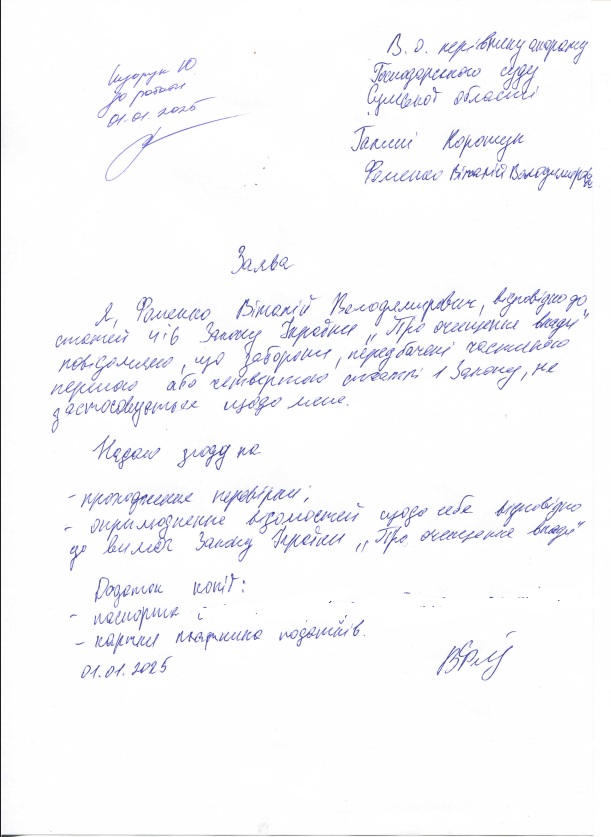 до роботи
01.01.2025
В. о. керівнику апарату
Господарського суду
Сумської області
Галині Коротун
Фоменко Віталій Володимирович
Заява
Я, Фоменко Віталій Володимирович, відповідно до
статей 4 і 6 Закону України „Про очищення влади"
повідомляю, що заборони, передбачені частиною
першою або четвертою статті 1 Закону, не
застосовуються щодо мене.
Надаю згоду на
- проходження перевірки;
- оприлюднення відомостей щодо себе відповідно
до вимог Закону України „Про очищення влади"
Додаток копії:
- паспорта і
- картки платника податків.
01.01.2025